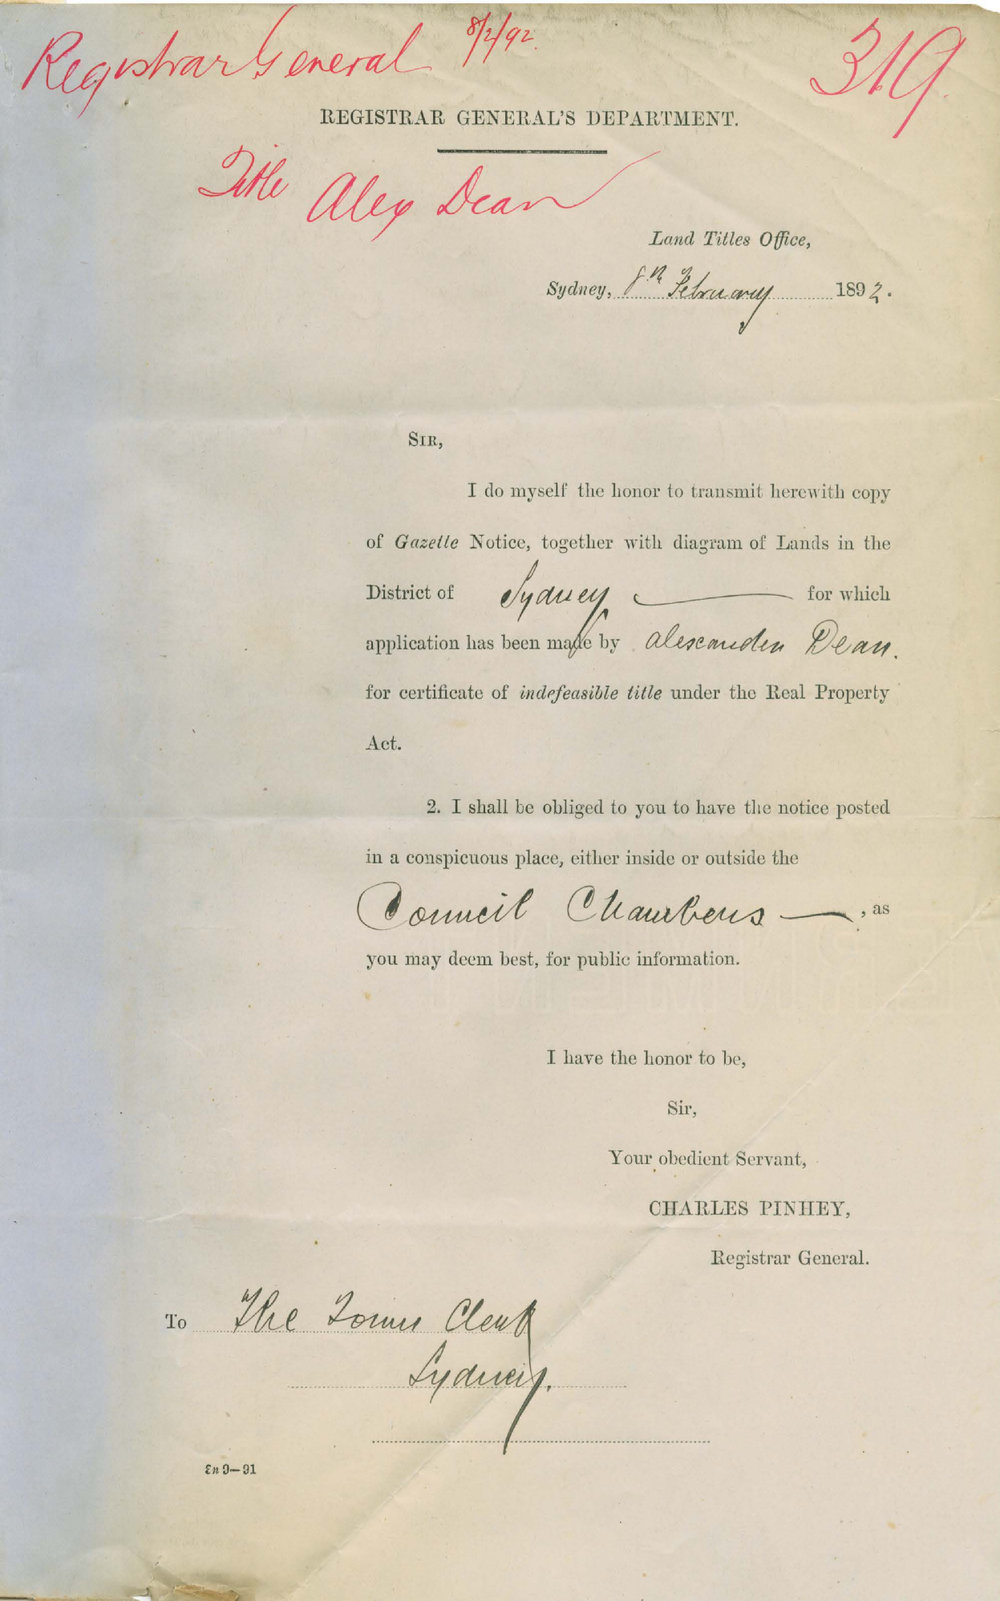 Registrar General 8/2/92.
319
REGISTRAR GENERAL'S DEPARTMENT.
Title Alex Dean
Land Titles Office,
Sydney, 8th February 1892.
SIR,
I do myself the honor to transmit herewith copy
of Gazette Notice, together with diagram of Lands in the
District of Sydney for which
application has been made by Alexander Dean.
for certificate of indefeasible title under the Real Property
Act.
2. I shall be obliged to you to have the notice posted
in a conspicuous place, either inside or outside the
Council Chambers —, as
you may deem best, for public information.
I have the honor to be,
Sir,
Your obedient Servant,
CHARLES PINHEY,
Registrar General.
To The Town Clerk
Sydney.
9—91